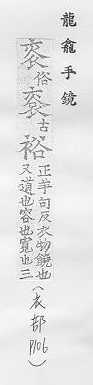 龍龕手鏡
俗 古 裕 正羊句反衣物饒也
又道也容也寬也三
(衣部 P106)